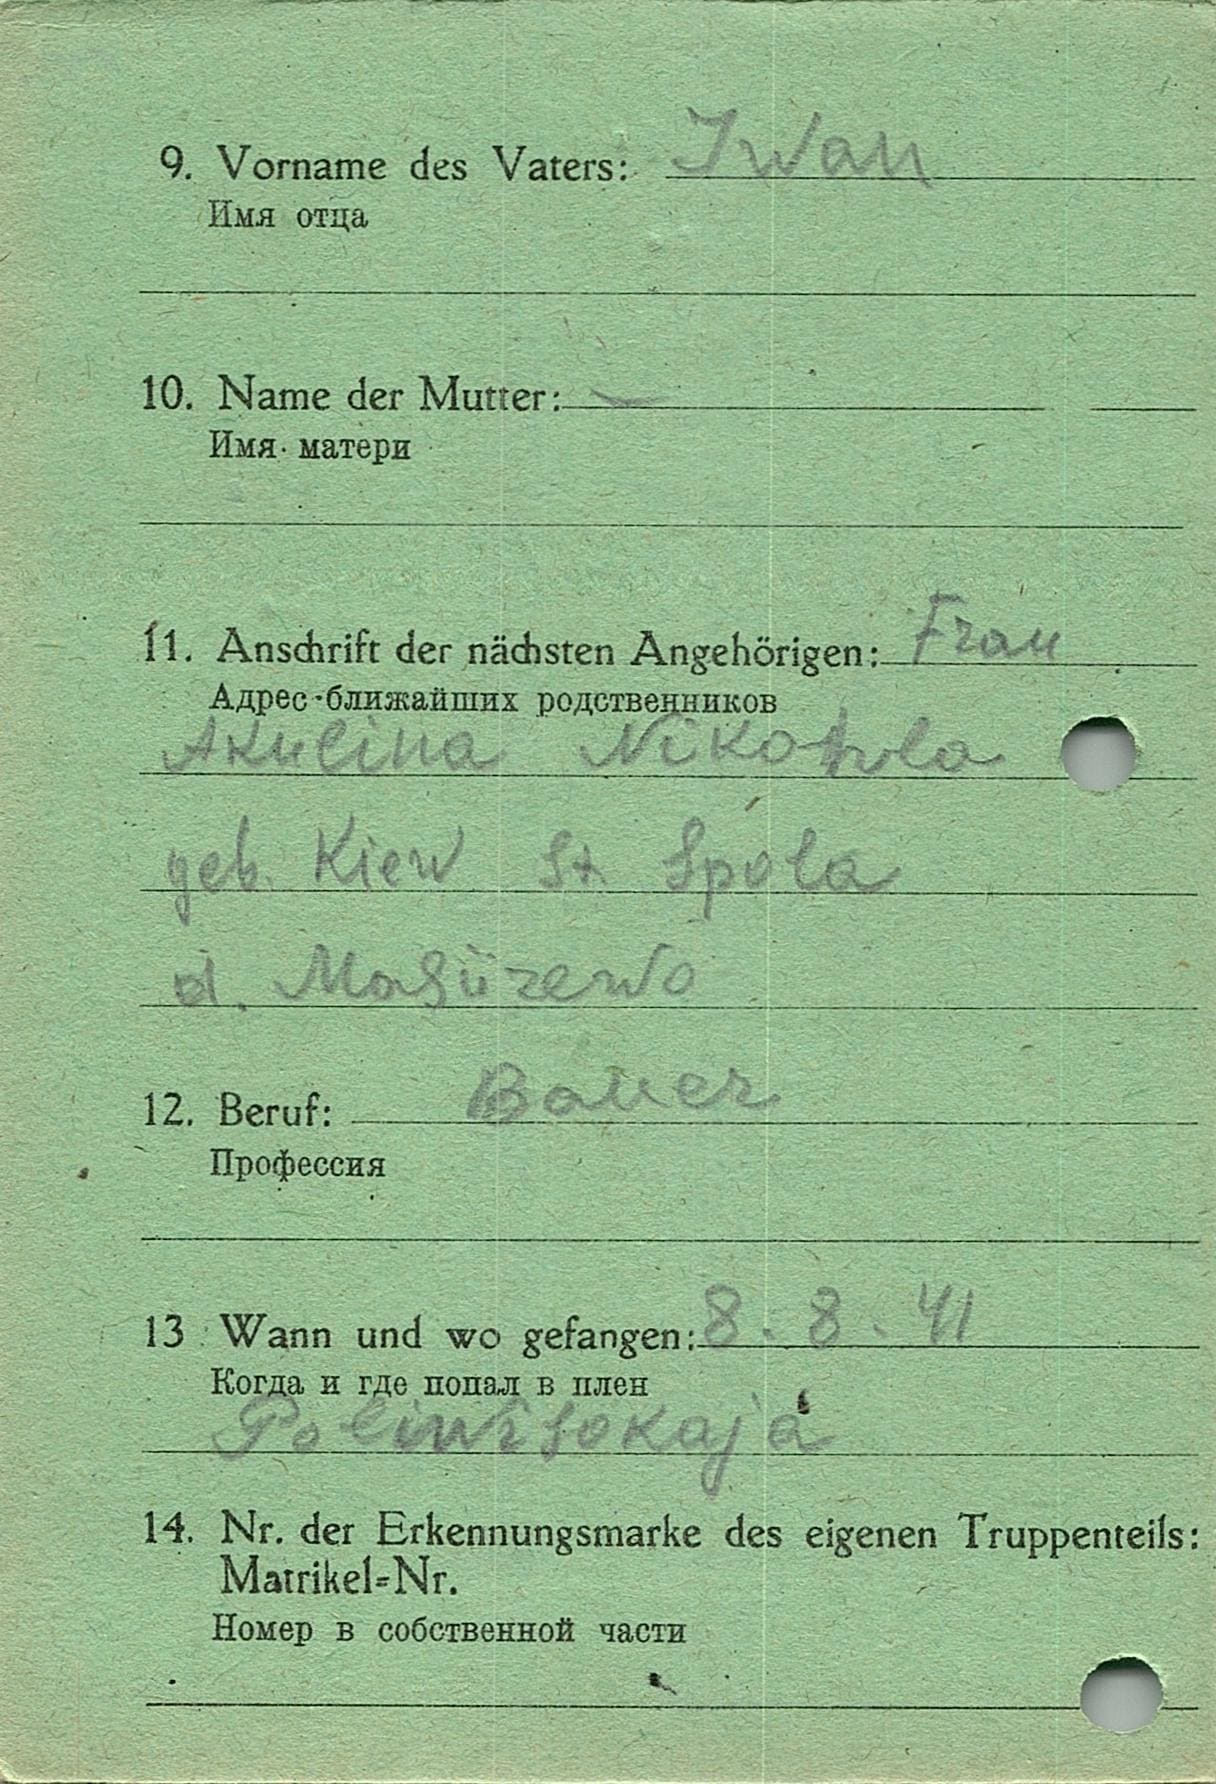 9. Vorname des Vaters: Iwan
Имя отца
10. Name der Mutter: —
Имя матери
11. Anschrift der nächsten Angehörigen: Frau
Адрес ближайших родственников
Akulina
geb. Kiew St. Spola
d.
12. Beruf: Bauer
Профессия
13 Wann und wo gefangen: 8. 8. 41
Когда и где попал в плен
14. Nr. der Erkennungsmarke des eigenen Truppenteils:
Matrikel=Nr.
Номер в собственной части